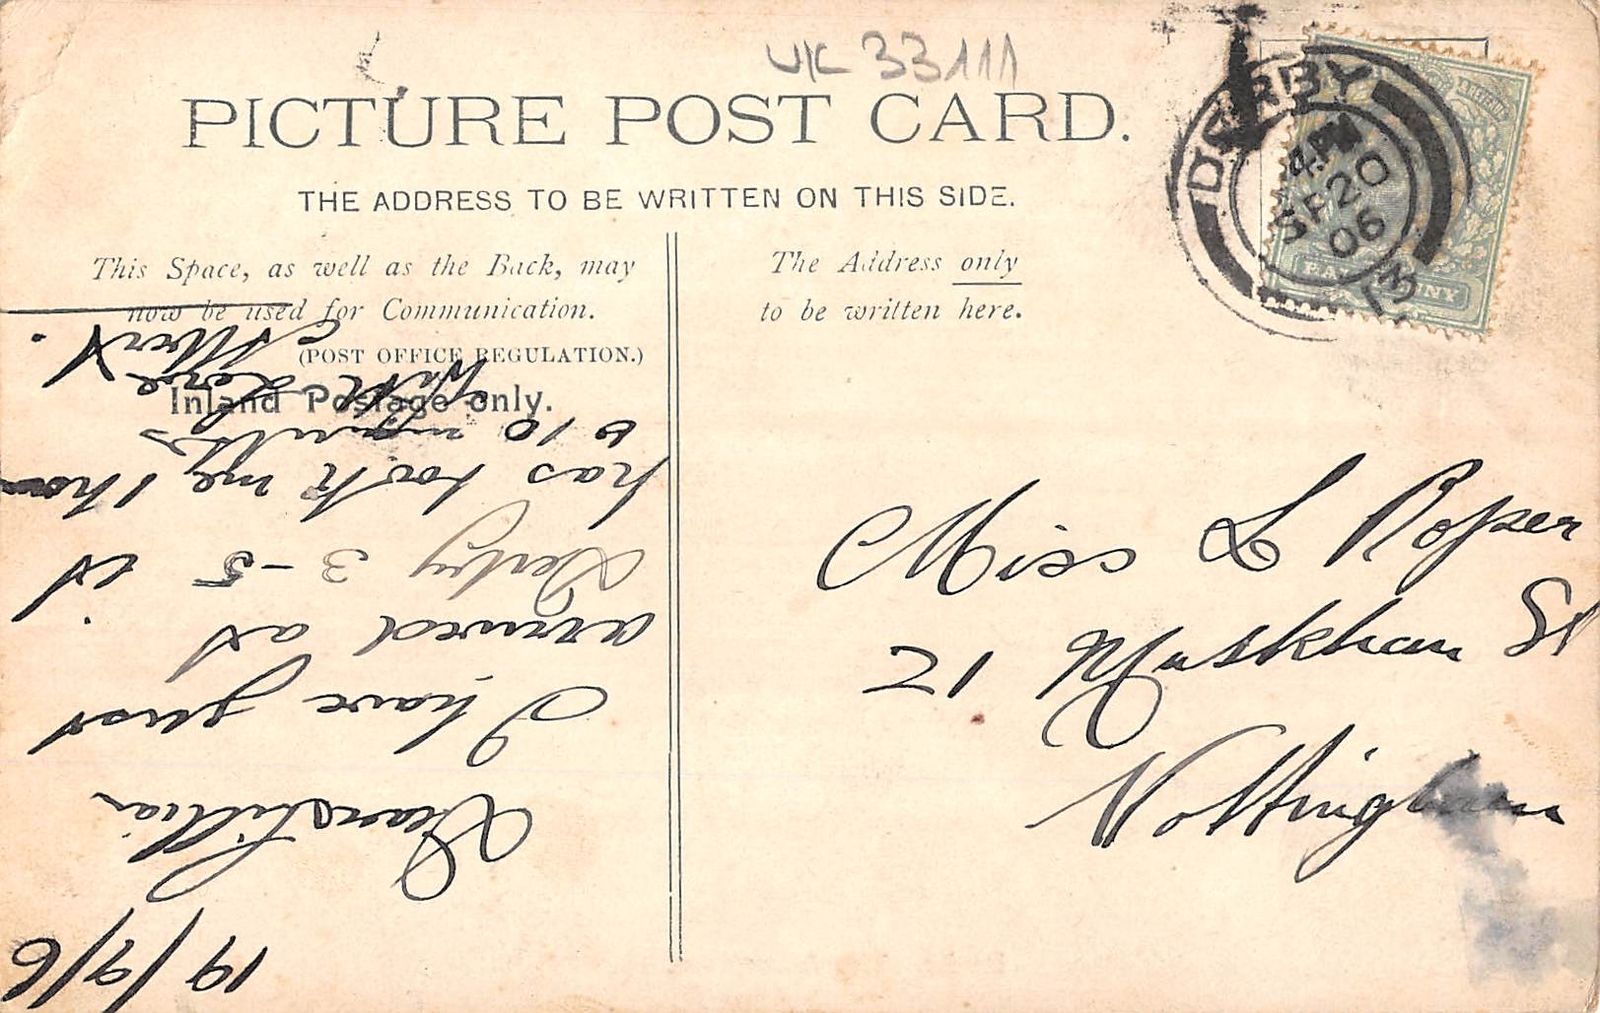 UK 33111
PICTURE POST CARD.
THE ADDRESS TO BE WRITTEN ON THIS SIDE.
This Space, as well as the Back, may
now be used for Communication.
(POST OFFICE REGULATION.)
Inland Postage only.
The Address only
to be written here.
DERBY
4. PM
SP 20
06
HALFPENNY
Miss L Roper
21 Muskham St
Nottingham
19/9/6
Dear Lillian
I have just
arrived at
Derby 3-5 it
has took me 1 hour
& 10 minutes
With Love
Albert.